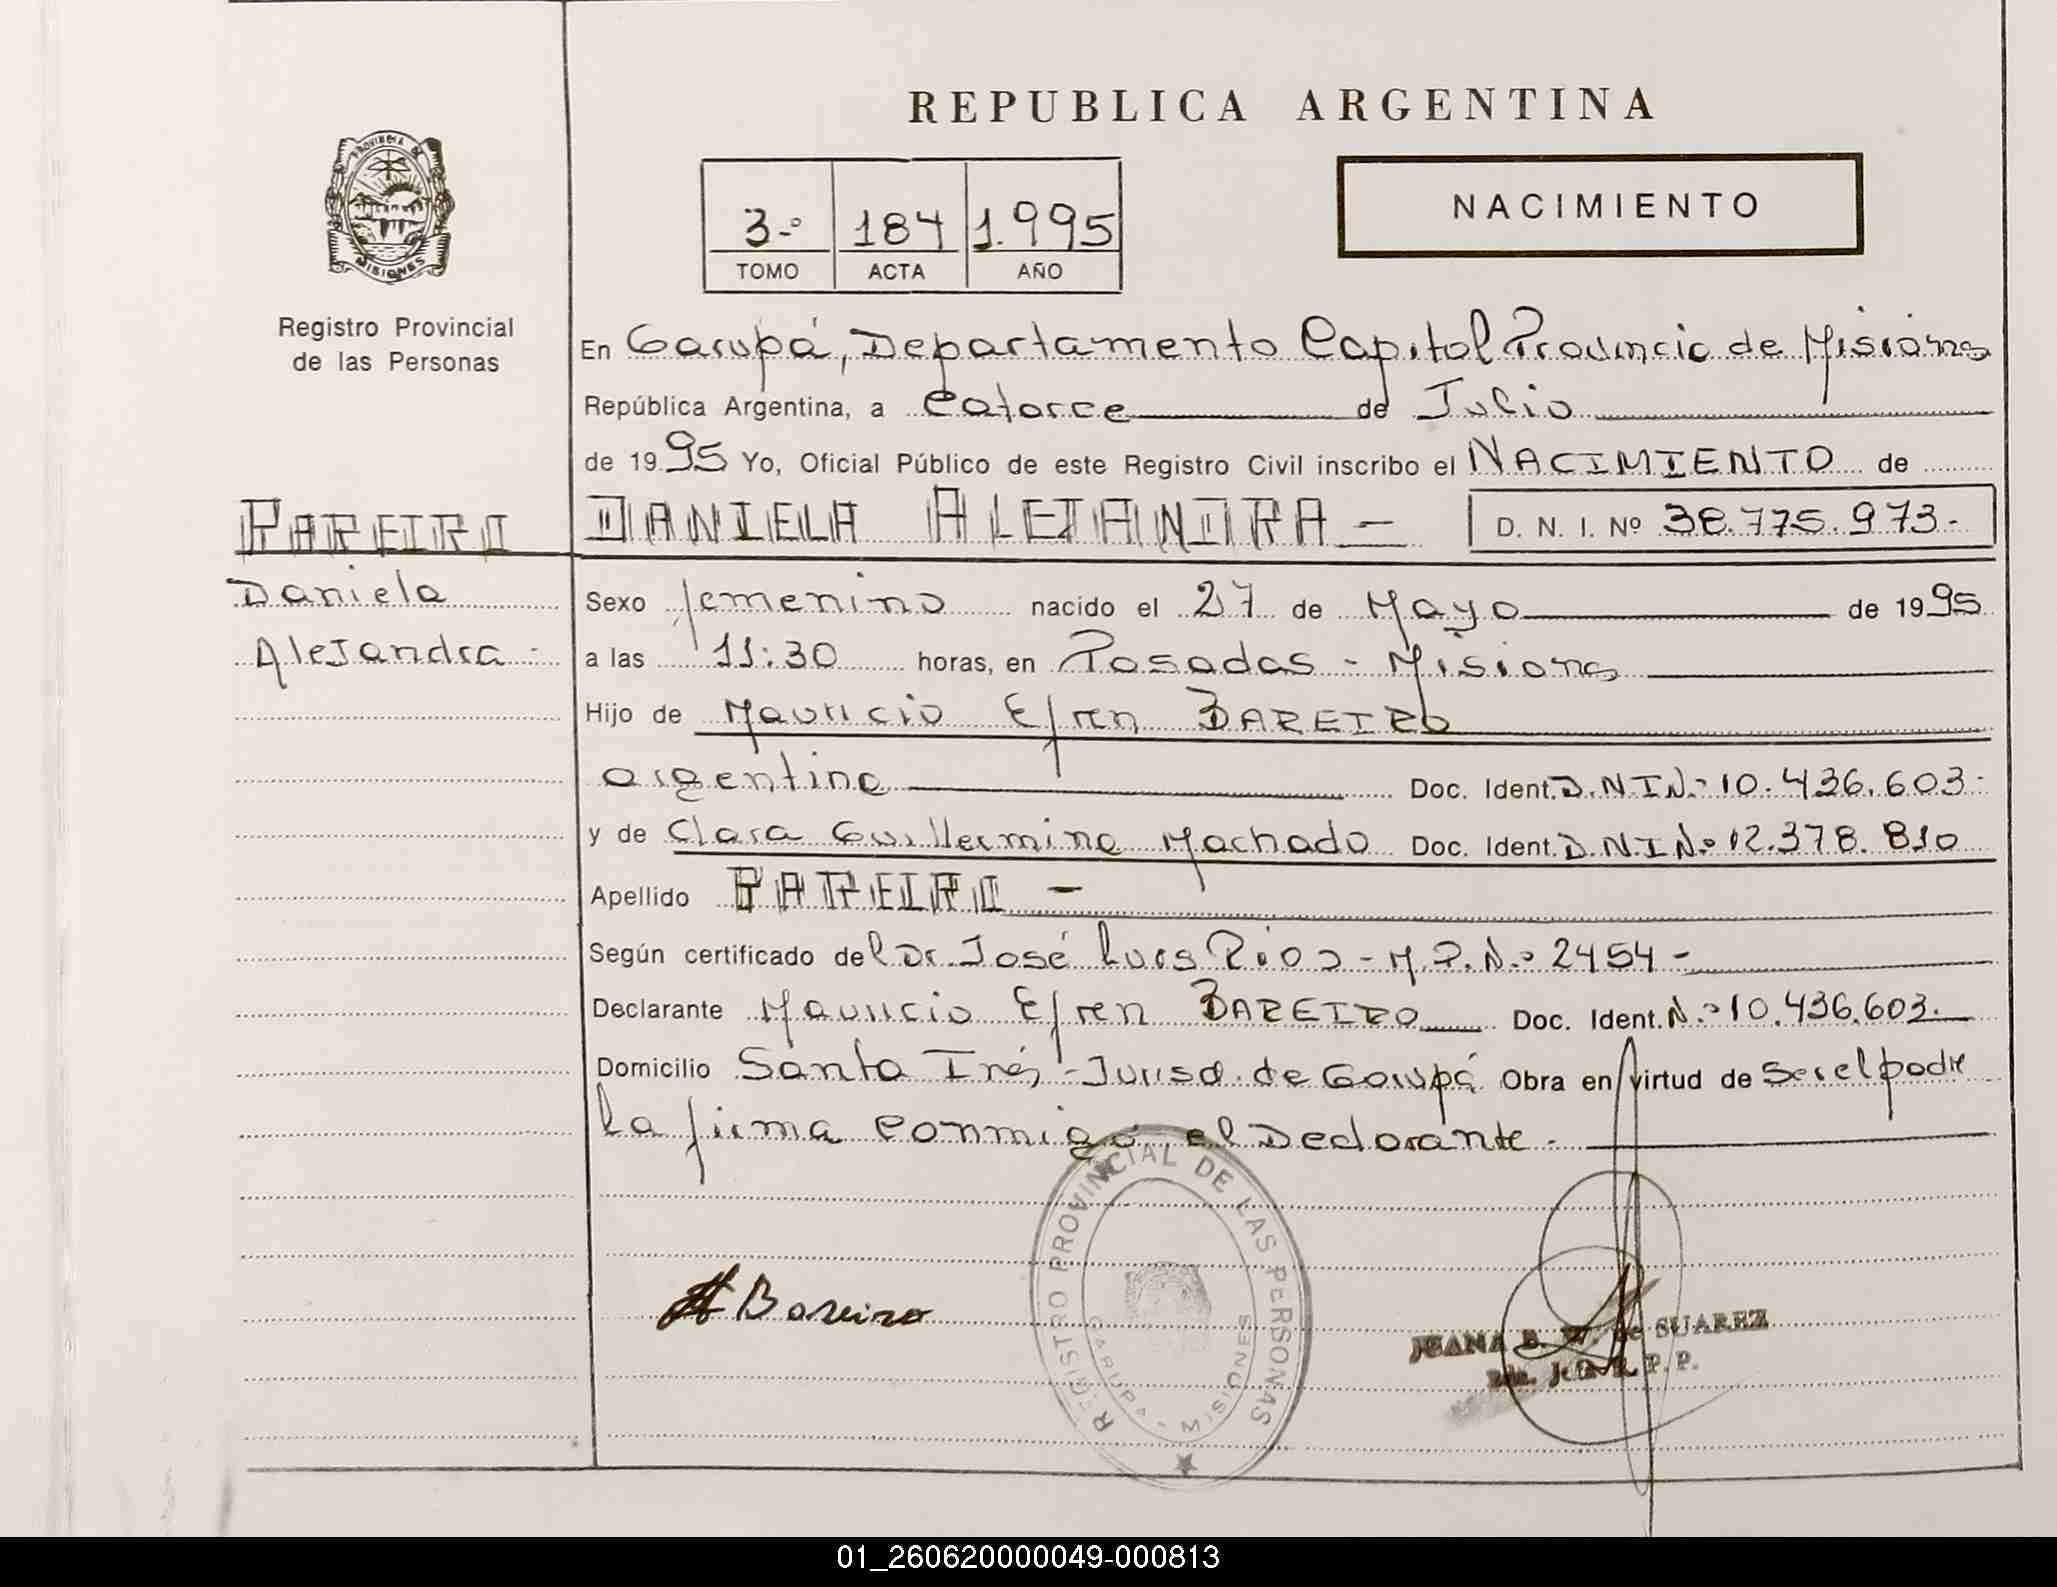 REPUBLICA ARGENTINA
PROVINCIA DE
MISIONES
Registro Provincial
de las Personas
3.º 184 1.995
TOMO ACTA AÑO
NACIMIENTO
En Garupá, Departamento Capital Provincia de Misiones
República Argentina, a Catorce de Julio
de 1995 Yo, Oficial Público de este Registro Civil inscribo el NACIMIENTO de
BAREIRO DANIELA ALEJANDRA - D. N. I. Nº 38.775.973.-
Daniela
Alejandra -
Sexo femenino nacido el 27 de Mayo de 1995
a las 11:30 horas, en Posadas - Misiones
Hijo de Mauricio Efren BAREIRO
argentino Doc. Ident. D.N.I N.º 10.436.603-
y de Clara Guillermina Machado Doc. Ident. D.N.I N.º 12.378.810
Apellido BAREIRO -
Según certificado del Dr. José Luis Rios - M.P.N.º 2454 -
Declarante Mauricio Efren BAREIRO Doc. Ident. N.º 10.436.603.
Domicilio Santa Inés - Jurisd. de Garupá Obra en virtud de Ser el padre
la firma conmigo el Declarante.-
REGISTRO PROVINCIAL DE LAS PERSONAS
GARUPA - MISIONES
Bareiro
JUANA B. de SUAREZ
R. P. P.
01_260620000049-000813